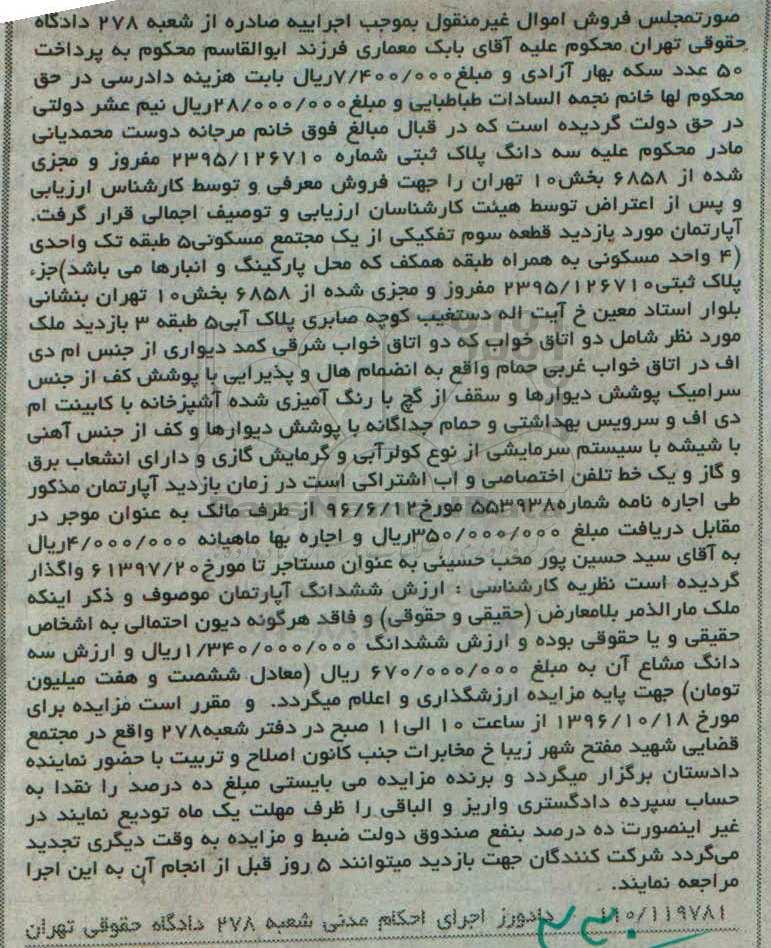 صورتمجلس فروش اموال غیرمنقول بموجب اجراییه صادره از شعبه ۲۷۸ دادگاه
حقوقی تهران محکوم علیه آقای بابک معماری فرزند ابوالقاسم محکوم به پرداخت
۵۰ عدد سکه بهار آزادی و مبلغ۷/۴۰۰/۰۰۰ریال بابت هزینه دادرسی در حق
محکوم لها خانم نجمه السادات طباطبایی و مبلغ۲۸/۰۰۰/۰۰۰ریال نیم عشر دولتی
در حق دولت گردیده است که در قبال مبالغ فوق خانم مرجانه دوست محمدیانی
مادر محکوم علیه سه دانگ پلاک ثبتی شماره ۲۳۹۵/۱۲۶۷۱۰ مفروز و مجزی
شده از ۶۸۵۸ بخش۱۰ تهران را جهت فروش معرفی و توسط کارشناس ارزیابی
و پس از اعتراض توسط هیئت کارشناسان ارزیابی و توصیف اجمالی قرار گرفت.
آپارتمان مورد بازدید قطعه سوم تفکیکی از یک مجتمع مسکونی۵ طبقه تک واحدی
(۴ واحد مسکونی به همراه طبقه همکف که محل پارکینگ و انبارها می باشد)جزء
پلاک ثبتی۲۳۹۵/۱۲۶۷۱۰ مفروز و مجزی شده از ۶۸۵۸ بخش۱۰ تهران بنشانی
بلوار استاد معین خ آیت اله دستغیب کوچه صابری پلاک آبی۵ طبقه ۳ بازدید ملک
مورد نظر شامل دو اتاق خواب که دو اتاق خواب شرقی کمد دیواری از جنس ام دی
اف در اتاق خواب غربی حمام واقع به انضمام هال و پذیرایی با پوشش کف از جنس
سرامیک پوشش دیوارها و سقف از گچ با رنگ آمیزی شده آشپزخانه با کابینت ام
دی اف و سرویس بهداشتی و حمام جداگانه با پوشش دیوارها و کف از جنس آهنی
با شیشه با سیستم سرمایشی از نوع کولرآبی و گرمایش گازی و دارای انشعاب برق
و گاز و یک خط تلفن اختصاصی و اب اشتراکی است در زمان بازدید آپارتمان مذکور
طی اجاره نامه شماره۵۵۳۹۳۸ مورخ۹۶/۶/۱۲ از طرف مالک به عنوان موجر در
مقابل دریافت مبلغ ۳۵۰/۰۰۰/۰۰۰ریال و اجاره بها ماهیانه ۴/۰۰۰/۰۰۰ریال
به آقای سید حسین پور محب حسینی به عنوان مستاجر تا مورخ۶۱۳۹۷/۲۰ واگذار
گردیده است نظریه کارشناسی : ارزش ششدانگ آپارتمان موصوف و ذکر اینکه
ملک مارالذمر بلامعارض (حقیقی و حقوقی) و فاقد هرگونه دیون احتمالی به اشخاص
حقیقی و یا حقوقی بوده و ارزش ششدانگ ۱/۳۴۰/۰۰۰/۰۰۰ریال و ارزش سه
دانگ مشاع آن به مبلغ ۶۷۰/۰۰۰/۰۰۰ ریال (معادل ششصت و هفت میلیون
تومان) جهت پایه مزایده ارزشگذاری و اعلام میگردد. و مقرر است مزایده برای
مورخ ۱۳۹۶/۱۰/۱۸ از ساعت ۱۰ الی۱۱ صبح در دفتر شعبه۲۷۸ واقع در مجتمع
قضایی شهید مفتح شهر زیبا خ مخابرات جنب کانون اصلاح و تربیت با حضور نماینده
دادستان برگزار میگردد و برنده مزایده می بایستی مبلغ ده درصد را نقدا به
حساب سپرده دادگستری واریز و الباقی را ظرف مهلت یک ماه تودیع نمایند در
غیر اینصورت ده درصد بنفع صندوق دولت ضبط و مزایده به وقت دیگری تجدید
می‌گردد شرکت کنندگان جهت بازدید میتوانند ۵ روز قبل از انجام آن به این اجرا
مراجعه نمایند.
۱۱۰/۱۱۹۷۸۱ دادورز اجرای احکام مدنی شعبه ۲۷۸ دادگاه حقوقی تهران